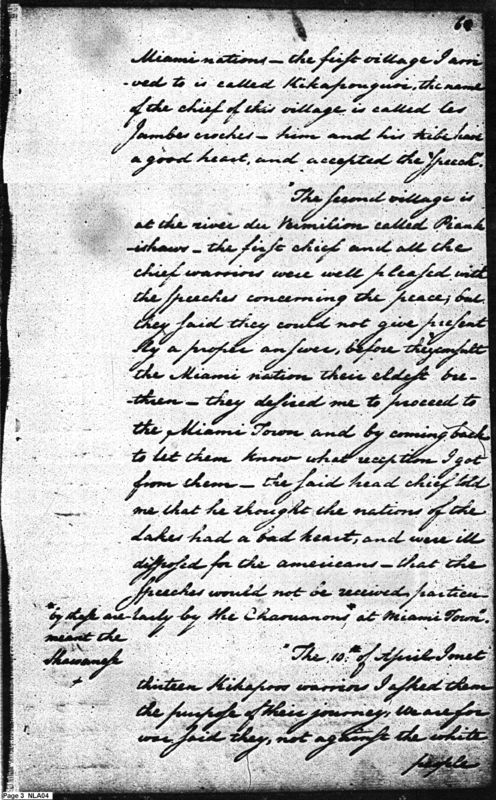 64
Miami nations — the first village I arri
-ved to is called Kikapouguoi, the name
of the chief of this village is called les
Jambes croches — him and his tribe have
a good heart, and accepted the speech".
"The second village is
at the river du Vermilion called Piank
-ishaws — the first chief and all the
chief warriors were well pleased with
the speeches concerning the peace; but
they said they could not give present
-ly a proper answer, before they consult
the Miami nation their eldest bre-
-thren — they desired me to proceed to
the Miami Town and by coming back
to let them know what reception I got
from them — the said head chief told
me that he thought the nations of the
Lakes had a bad heart, and were ill
disposed for the americans — that the
speeches would not be received, particu-
-larly by the Chaouanons* at Miami Town".
*by these are
meant the
Shawanese
+
"The 10th of April I met
thirteen Kikapoos warriors I asked them
the purpose of their journey, We are for
war said they, not against the white
people
Page 3 NLA04